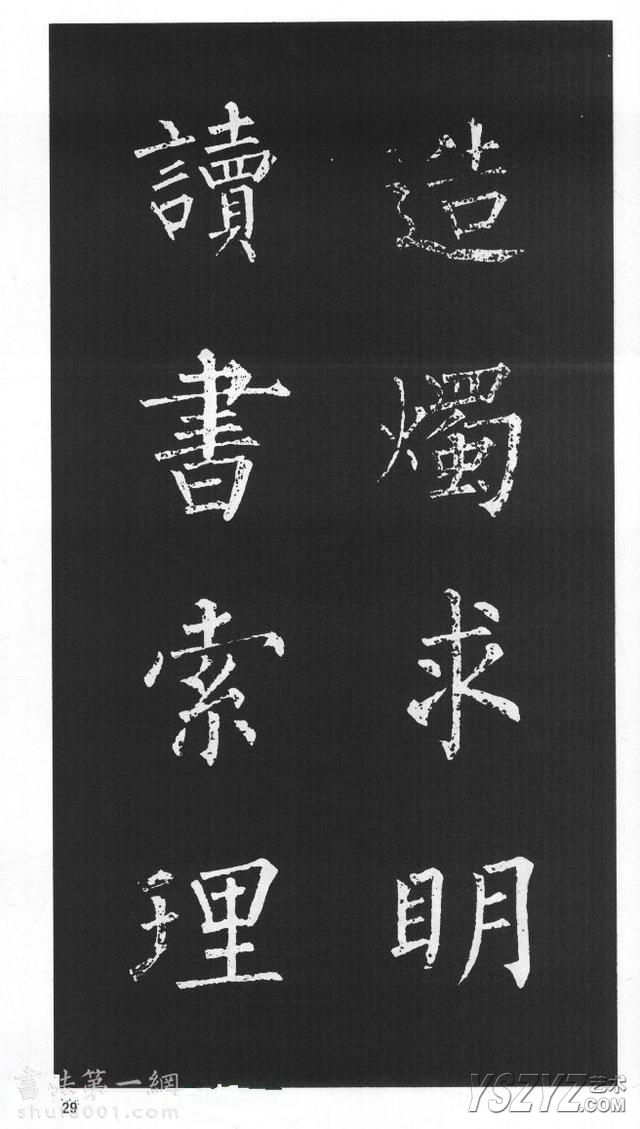 造燭求明
讀書索理
書法第一網
shufa001.com
29
YSZYZ艺术
.COM